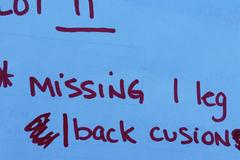 LOT 11
* MISSING 1 leg
1 back cusions